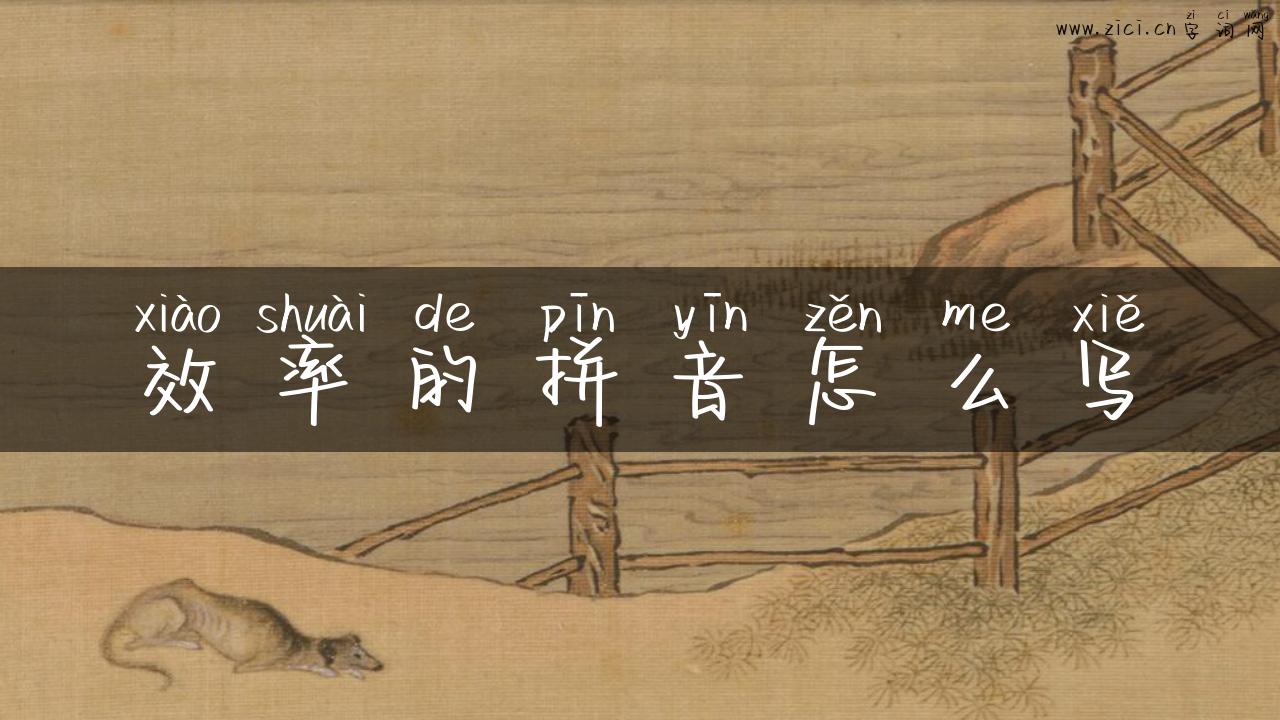 zi ci wang
www.zici.cn 字词网
xiào shuài de pīn yīn zěn me xiě
效率的拼音怎么写